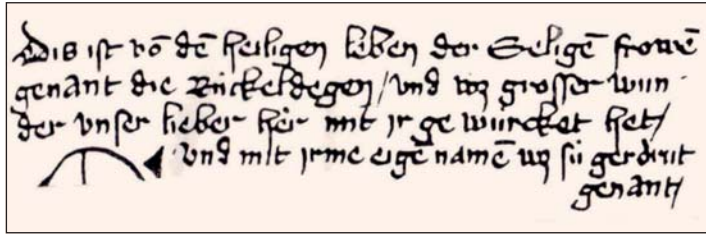 Dis ist vō dē heiligen leben der Seligē frowē
genant die Rückeldegen / vnd wz grosser wun
der vnser lieber her mit ir ge würcket het /
vnd mit irme eigē namē wz sü gerdrut
genant /